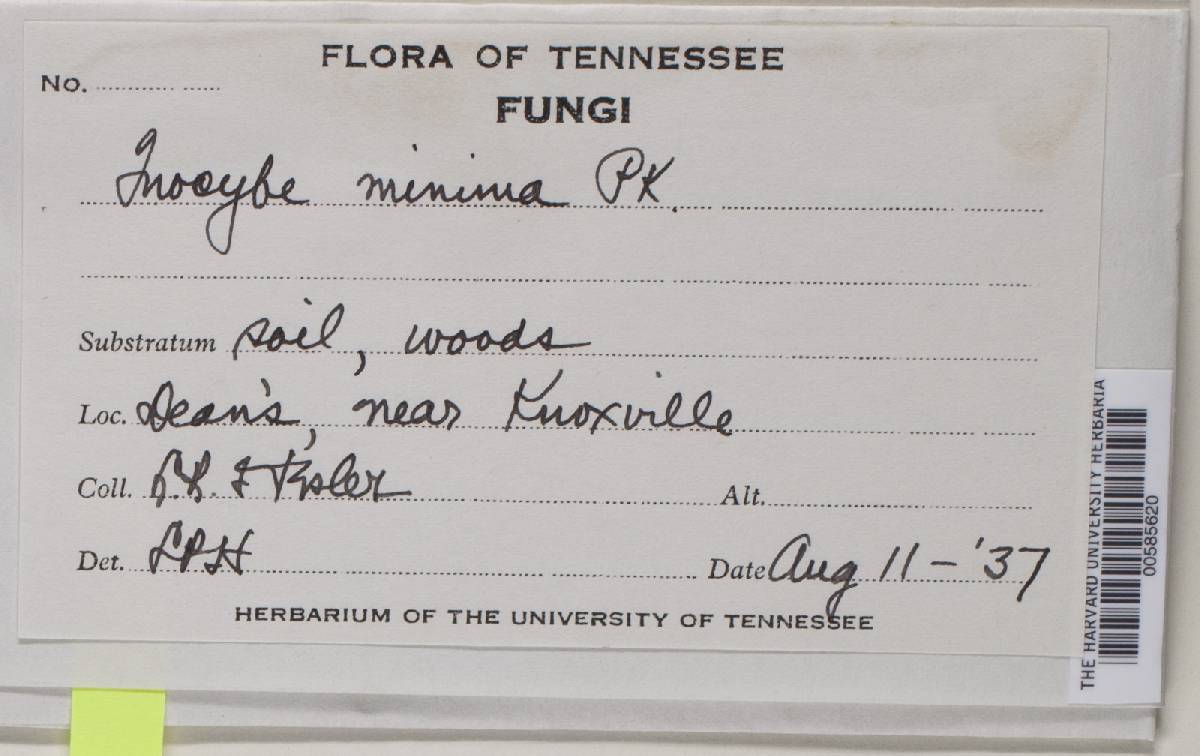 FLORA OF TENNESSEE
No.
FUNGI
Inocybe minima PK.
Substratum soil, woods
Loc. Dean's, near Knoxville
Coll.
Alt.
Det. LRH
Date Aug 11-'37
HERBARIUM OF THE UNIVERSITY OF TENNESSEE
THE HARVARD UNIVERSITY HERBARIA
00585620